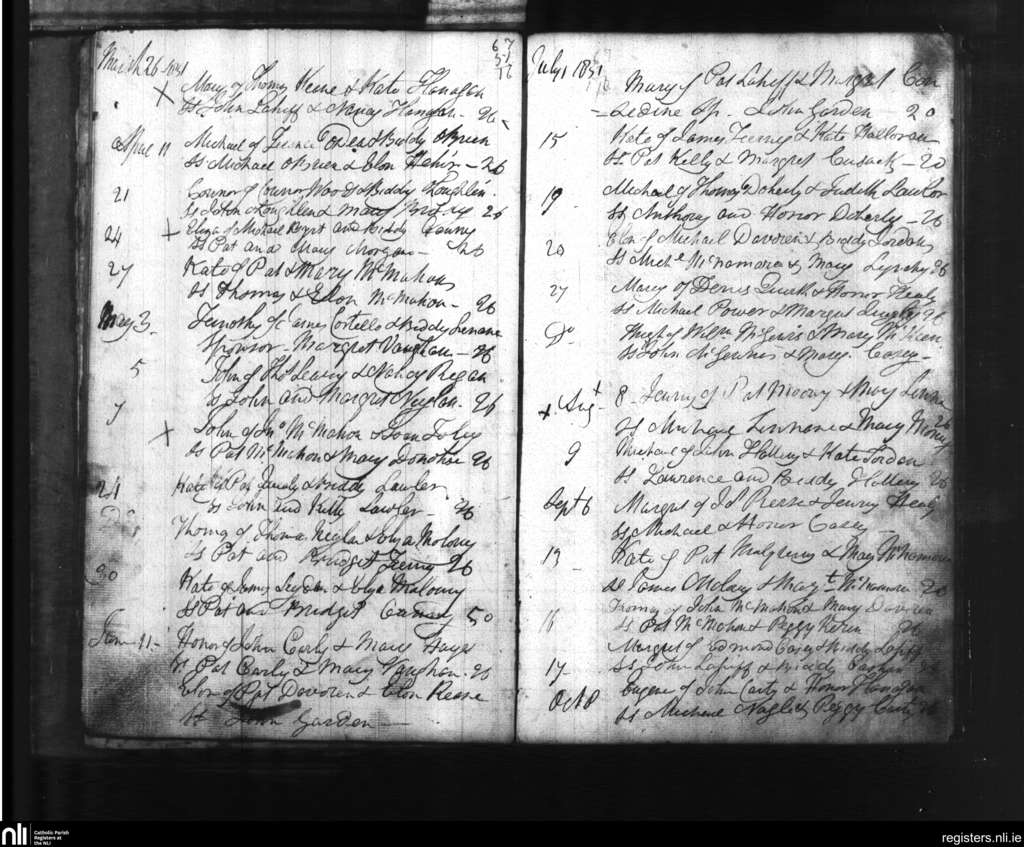 March 26 1831
67
51
16
X Mary of Thomas Keane & Kate Flanagan
Ss John Lahiff & Nancy Flanagan - 26
April 11 Michael of Terence O'Dea & Biddy O'Brien
Ss Michael O'Brien & Elon Hehir - 26
21 Connor of Connor & Biddy Loughlin
Ss John Loughlen & Mary 26
24 X Eliza of Michael and Biddy
Ss Pat and Mary Morgan - 26
27 Kate of Pat & Mary McMahon
Ss Thomas & Elon McMahon - 26
May 3 Timothy of James Costello & Biddy Linnane
Sponsor - Margret Vaughan - 26
5 John of Thos Leary & Nancy Regan
Ss John and Margret Neylan - 26
7 X John of Jno McMahon & Joan Foley
Ss Pat McMahon & Mary Donohoe 26
21 Kate of Pat & Biddy Lawler
Ss John and Kitty Lawler - 26
Do Thomas of Thomas Neylan & Elya Molony
Ss Pat and Bridget 26
30 Kate of James & Elya Malouny
Ss Pat and Bridget 50
June 11 - Honor of John Carly & Mary Hayes
Ss Pat Carly & Mary Vaughan - 25
Elon of Pat Davoren & Elon Keane
St John Garden -
July 1 1831 Mary of Pat Lahiff & Margret Con
= sedine Sp. - John Gorden 20
15 Kate of James & Kate Halloran
Ss Pat Kelly & Margret Cusack - 20
19 Michael of Thomas Doherty & Judith Lawlor
Ss Anthony and Honor Doherty - 26
20 Elon of Michael Davoren & Biddy Jordan
Ss Michl McNamora & Mary Lynchy 26
27 Mary of Denis & Honor Healy
Ss Michael Power & Margret 26
Do Hugh of Willm McGuin & Mary
Ss John McGuines & Mary Casey -
X Augt 8 Jenny of Pat Moony & Mary Linnane
Ss Michael Linnane & Mary Money 26
9 Michael of John Hallery & Kate Jordan
Ss Lawrence and Biddy Hallery 26
Sept 6 Margret of Js & Jenny Healy
Ss Michael & Honor Casey -
13 Kate of Pat & Mary McNamara
Ss James & Margt McNamara 20
16 Thomas of John McMahon & Mary Davoren
Ss Pat McMahon & Peggy 26
17 Margret of Edmond Casey & Biddy Lahiff
Ss John Lahiff & Biddy
Oct 8 Eugene of John Carty & Honor Flanagan
Ss Michael & Peggy Carty
nli
Catholic Parish
Registers at
the NLI
registers.nli.ie